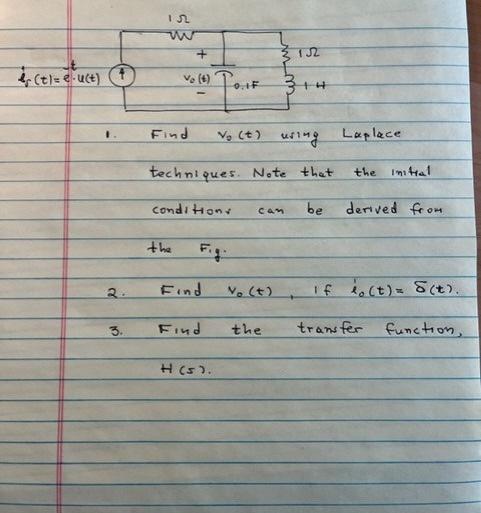 1 Ω
+
1Ω
i_s(t)=e^-t·u(t)
v_o(t)
0.1F
1 H
−
1. Find v_o(t) using Laplace
techniques. Note that the initial
conditions can be derived from
the Fig.
2. Find v_o(t), if i_o(t)= δ(t).
3. Find the transfer function,
H(s).